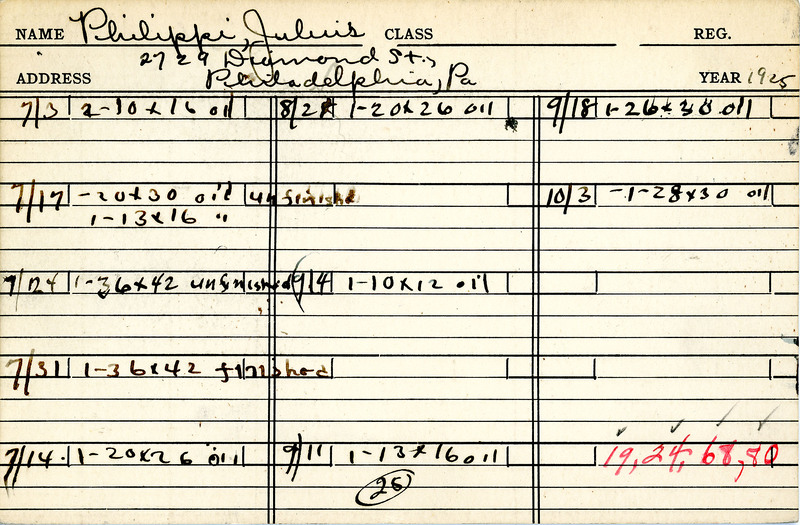 NAME Philippi, Julius CLASS REG.
2729 Diamond St.,
ADDRESS Philadelphia, Pa YEAR 1925
7/3 2-10x16 oil 8/21 1-20x26 oil 9/18 1-26x30 oil
7/17 -20x30 oil unfinished 10/3 -1-28x30 oil
1-13x16 "
7/24 1-36x42 unfinished 9/4 1-10x12 oil
7/31 1-36x42 finished
7/14. 1-20x26 oil 9/11 1-13x16 oil 19, 24, 68, 80
26